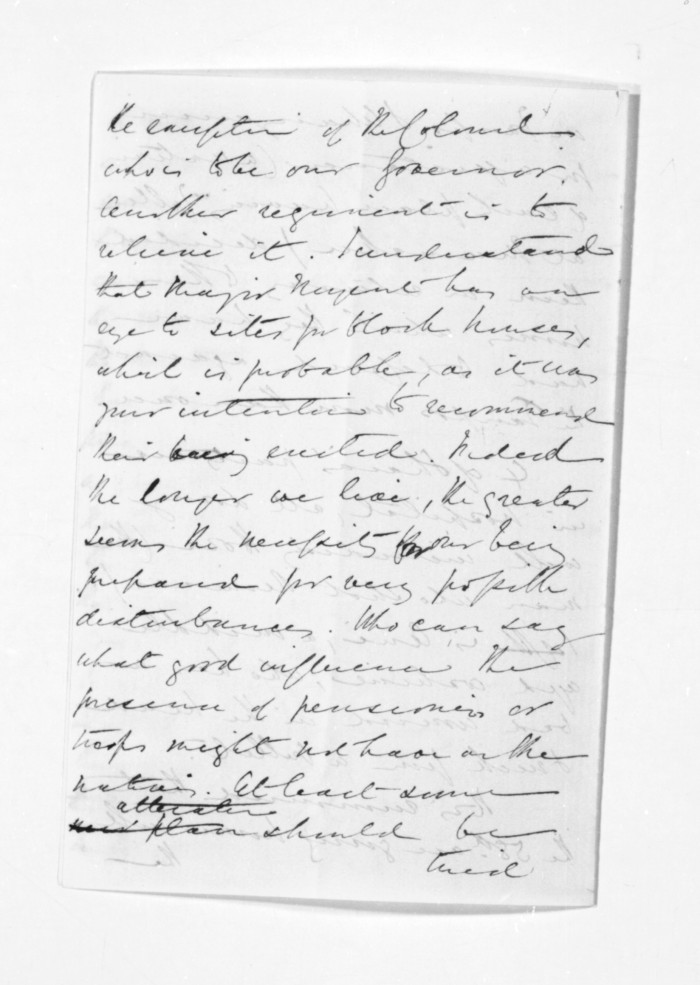 the exception of the Colonel
who is to be our Governor.
Another regiment is to
relieve it. I understand
that Major Nugent has an
eye to sites for block houses,
which is probable, as it was
your intention to recommend
their being erected. Indeed
the longer we live, the greater
seems the necessity for our being
prepared for very possible
disturbances. Who can say
what good influence the
presence of pensioners or
troops might not have on the
natives. At least some
alteration
plan should be
tried